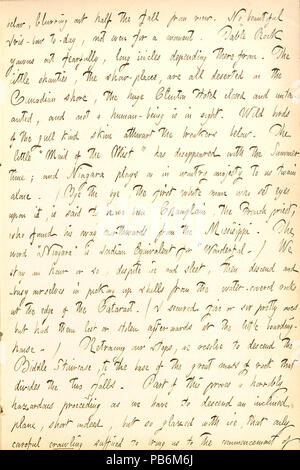 below, blurring out half the fall from view. No beautiful
Iris-bow to-day, not even for a moment. Table Rock
yawns out fearfully, long icicles depending therefrom. The
little shanties, the show-places, are all deserted on the
Canadian shore, the huge Clifton Hotel closed and untenanted,
and not a human-being is in sight. Wild birds
of the gull kind skim athwart the breakers below. The
little "Maid of the Mist" has disappeared with the Summer
time; and Niagara plays on in wintry majesty to us twain
alone. (By the bye, the first white man who set eyes
upon it, is said to have been Champlain, the French priest
who found his way northwards from the Mississippi. The
word "Niagara" is Indian Equivalent for "Wonderful." / We
stay an hour or so, despite ice and sleet, then descend and
busy ourselves in picking up shells from the water-covered rocks
at the edge of the Cataract. / I secured five or six pretty ones
but had them lost or stolen afterwards at the boarding
house. / Retracing our steps, we resolve to descend the
Biddle Staircase, to the base of the great mass of rock that
divides the two falls. Part of this proves a horribly
hazardous proceeding as we have to descend an inclined
plane, short indeed, but so glazed with ice, that only
careful crawling sufficed to bring us to the commencement of
alamy
alamy
Image ID: PB6M6J
www.alamy.com